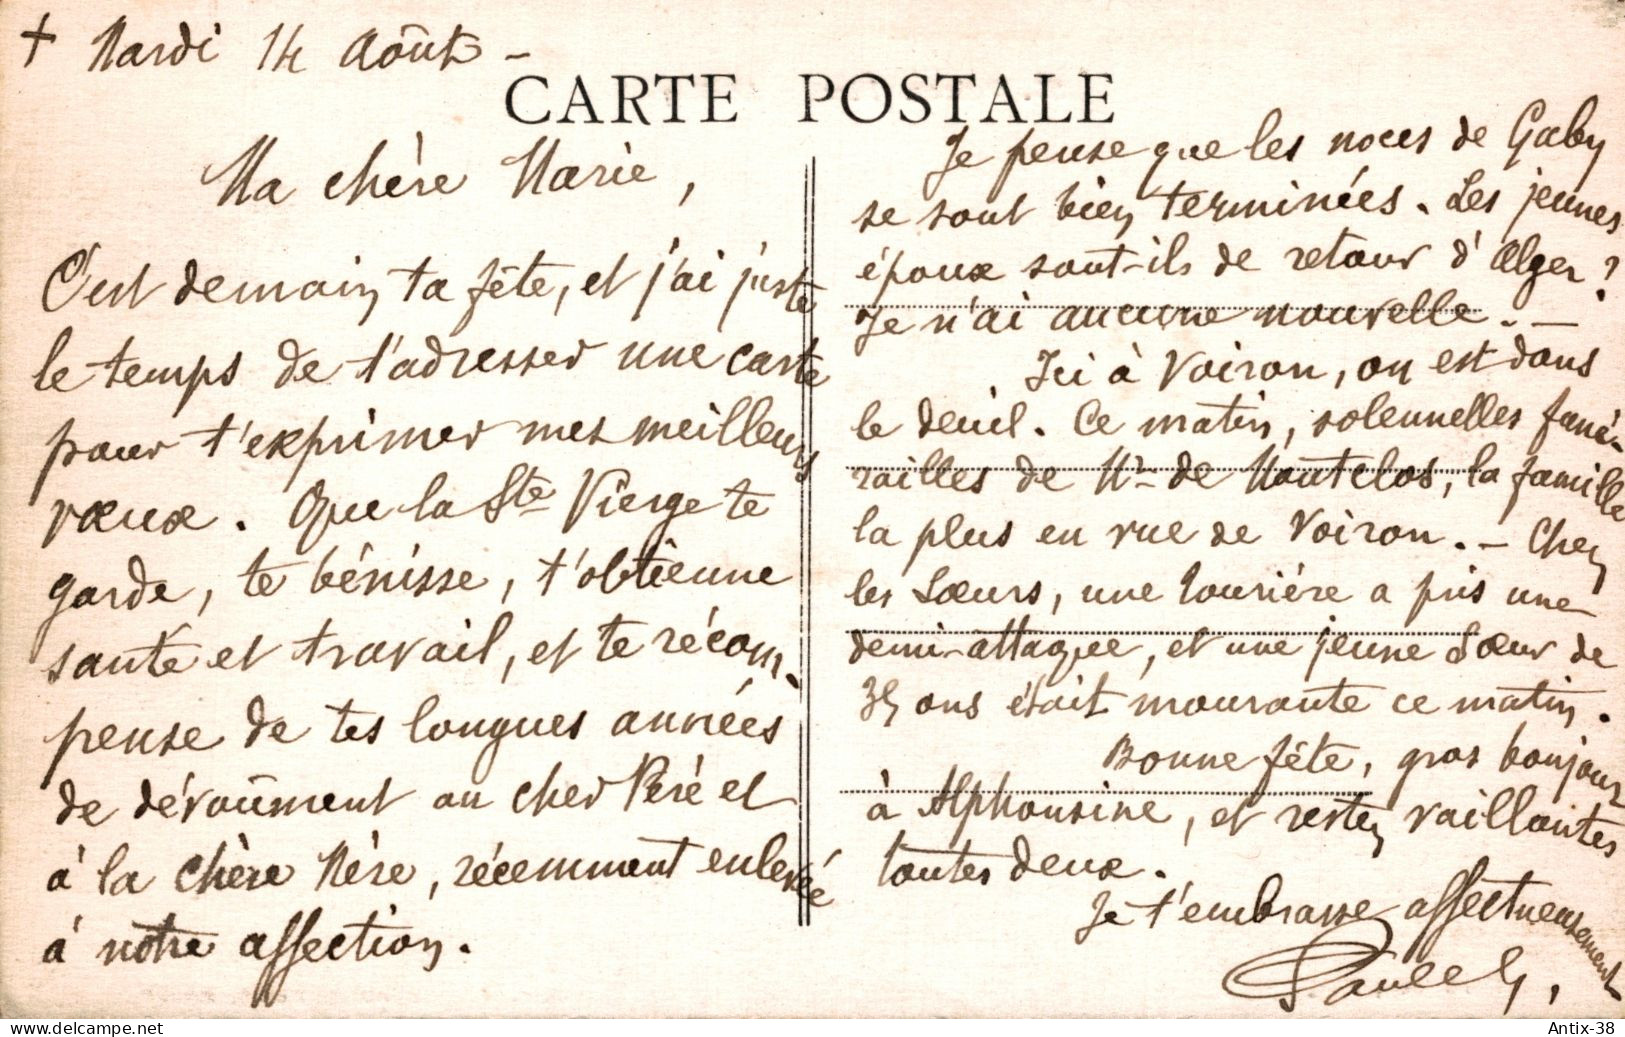 + Mardi 14 Août -
CARTE POSTALE
Ma chère Marie,
C'est demain ta fête, et j'ai juste
le temps de t'adresser une carte
pour t'exprimer mes meilleurs
vœux. Que la Ste Vierge te
garde, te bénisse, t'obtienne
santé et travail, et te récom-
pense de tes longues années
de dévoûment au cher Père et
à la chère Mère, récemment enlevée
à notre affection.
Je pense que les noces de Gaby
se sont bien terminées. Les jeunes
époux sont-ils de retour d'Alger?
Je n'ai aucune nouvelle. -
Ici à Voiron, on est dans
le deuil. Ce matin, solennelles funé-
railles de Mr de Montelos, la famille
la plus en vue de Voiron. - Chez
les Sœurs, une tourière a pris une
demi-attaque, et une jeune Sœur de
35 ans était mourante ce matin.
Bonne fête, gros bonjour
à Alphonsine, et restez vaillantes
toutes deux.
Je t'embrasse affectueusement
Antix-38